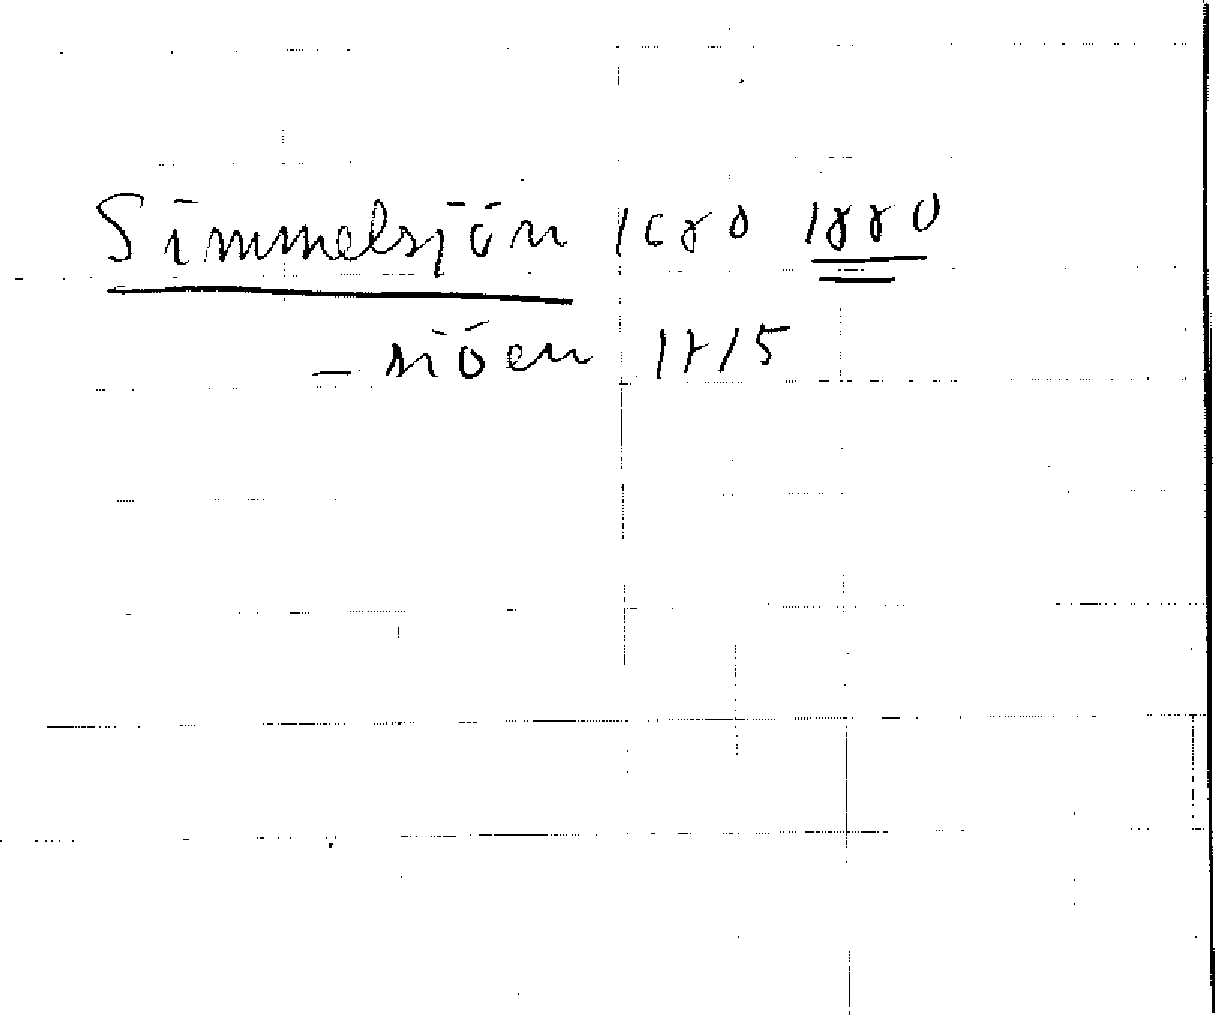 Simmelsjön 1680 1880
- siöen 1715